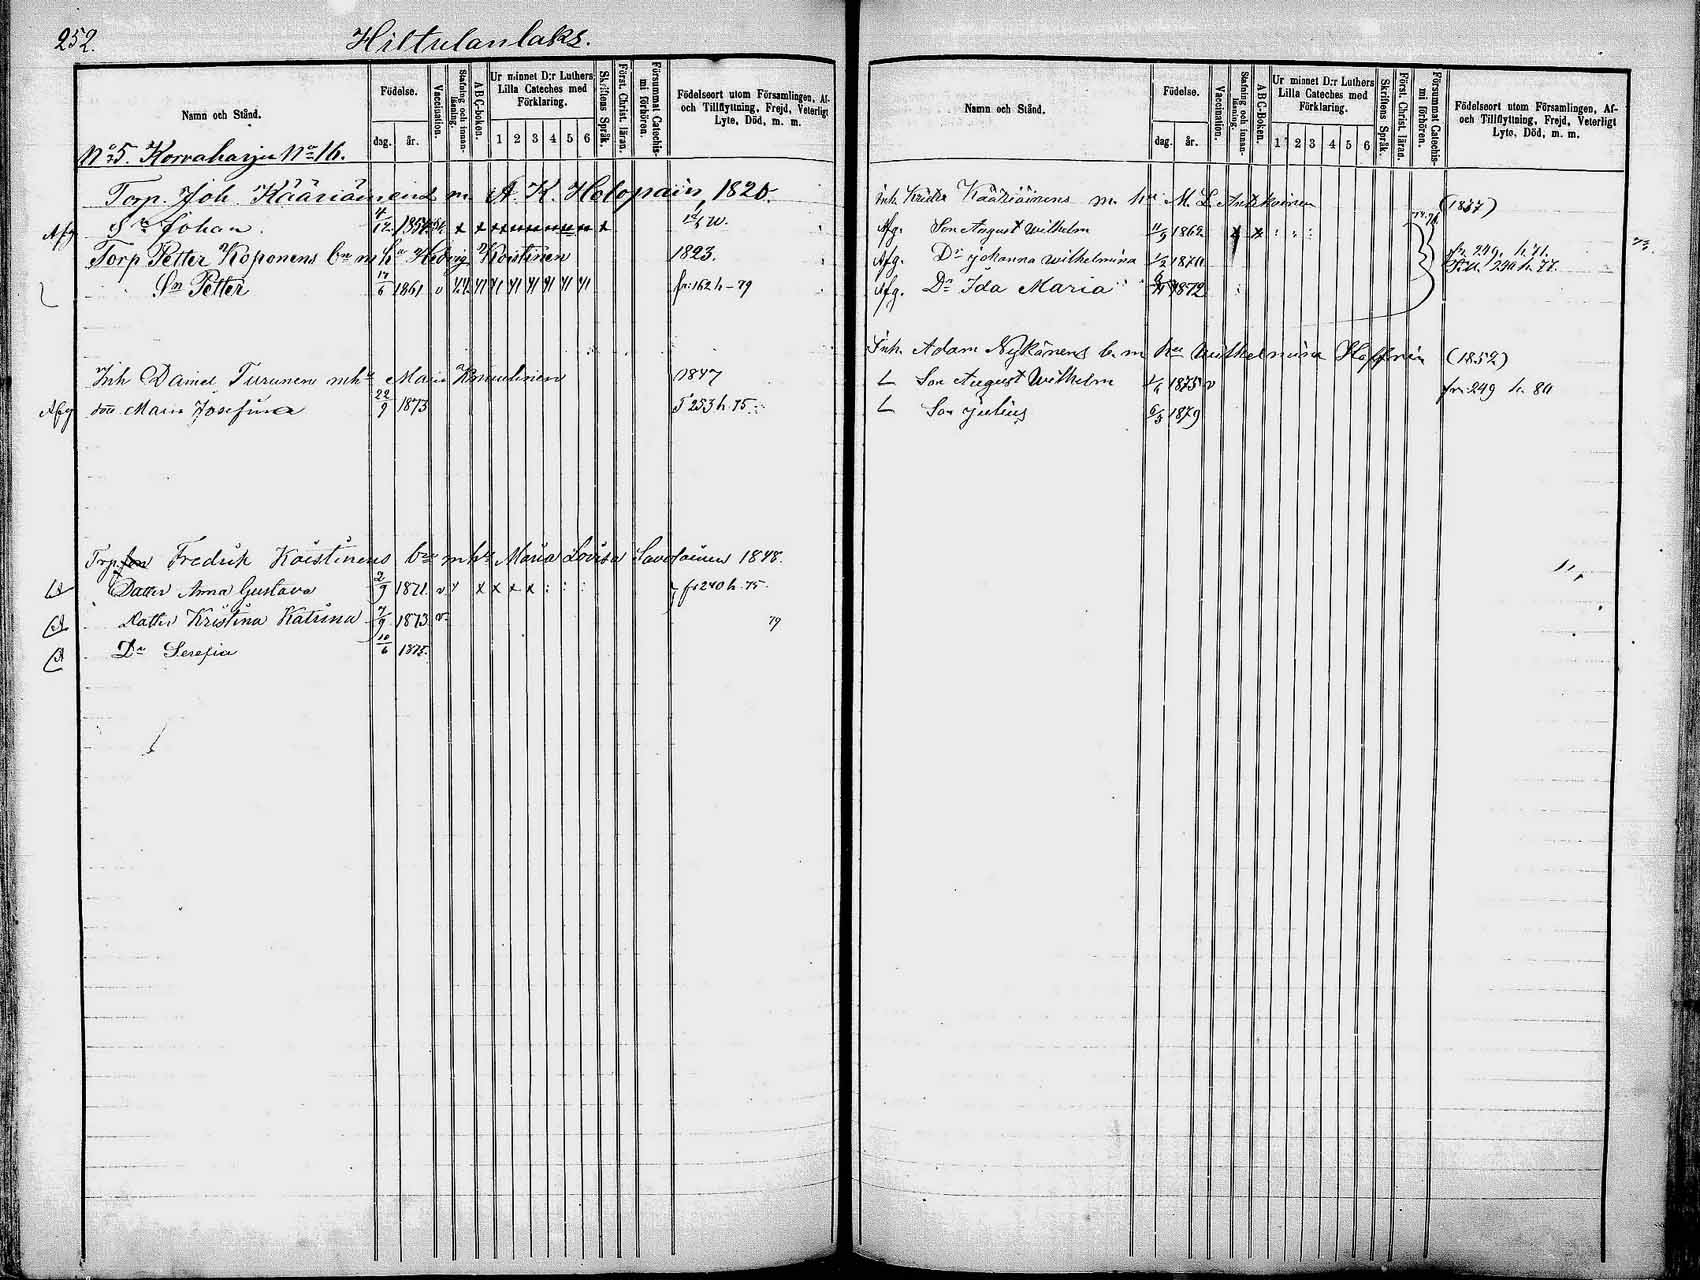 252.
Hiltulanlaks.
Namn och Stånd.
Födelse.
dag. år.
Vaccination.
Stafning och innan-läsning.
A B C-boken.
Ur minnet D:r Luthers Lilla Cateches med Förklaring.
1 2 3 4 5 6
Skriftens Språk.
Först. Christ. läran.
Försummat Catechis-mi förhören.
Födelseort utom Församlingen, Af- och Tillflyttning, Frejd, Veterligt Lyte, Död, m. m.
No 5. Korvaharju No 16.
Torp. Joh. Kääriäinens m. A. K. Holopain, 1820.
Afg Sn Johan. 4/12 1854
Torp Petter Koponens bn m hu Hedvig Koistinen 1823.
Sn Petter 17/6 1861 v fr: 162 h - 79
Inh Daniel Turunen mhu Maria 1847
Afg dotr Maria Josefina 22/9 1873 T 253 h. 75.
Torp Fredrik Koistinens bn mhu Maria Lovisa Savolainen 1848.
Dotter Anna Gustava 2/9 1871 v fr 240 h. 75.
Dotter Kristina Katrina 7/9 1873 v 79
Dr Serefia 10/6 1875.
Namn och Stånd.
Födelse.
dag. år.
Vaccination.
Stafning och innan-läsning.
A B C-Boken.
Ur minnet D:r Luthers Lilla Cateches med Förklaring.
1 2 3 4 5 6
Skriftens Språk.
Först. Christ. läran.
Försummat Catechis-mi förhören.
Födelseort utom Församlingen, Af- och Tillflyttning, Frejd, Veterligt Lyte, Död, m. m.
Inh Krister Kääriäinens m. hu M. L. Antikainen (1837)
Afg. Son August Wilhelm 11/9 1862
Afg. Dr Johanna Wilhelmina 1/2 1870 fr. 249. h. 71.
Afg. Dr Ida Maria 1872 h. 77.
Inh. Adam Nykänens b. m hu Wilhelmina Staffrin (1852)
Son August Wilhelm 1/4 1875 v fr: 249 h. 80
Son Julius 6/3 1879